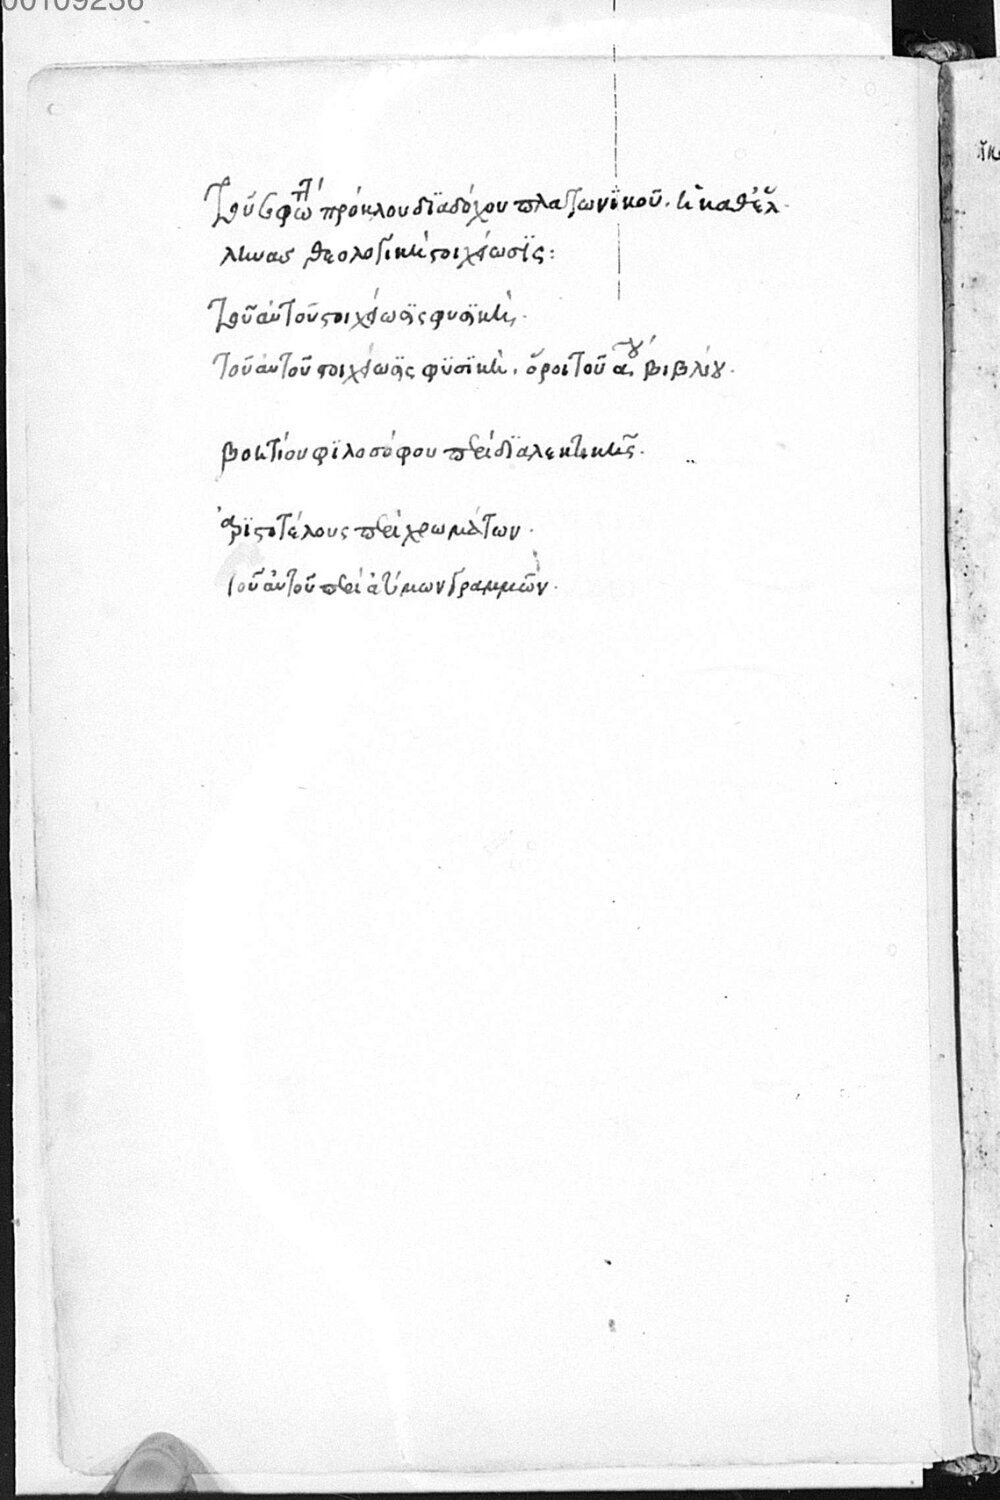 00109236
Τοῦ σοφωτ́ πρόκλου διαδόχου πλατωνϊκοῦ. ἡ καθ' ἕλ-
ληνας θεολογικὴ στοιχείωσϊς:
Τοῦ αὐτοῦ στοιχείωσις φυσικὴ.
Τοῦ αὐτοῦ στοιχείωσις φϋσϊκὴ. ὅροι τοῦ α,ου βιβλίου.
βοητίου φϊλοσόφου περὶ δϊαλεκτικῆς.
ἀρϊστοτέλους περὶ χρωμάτων.
τοῦ αὐτοῦ περὶ ἀτόμων γραμμῶν.